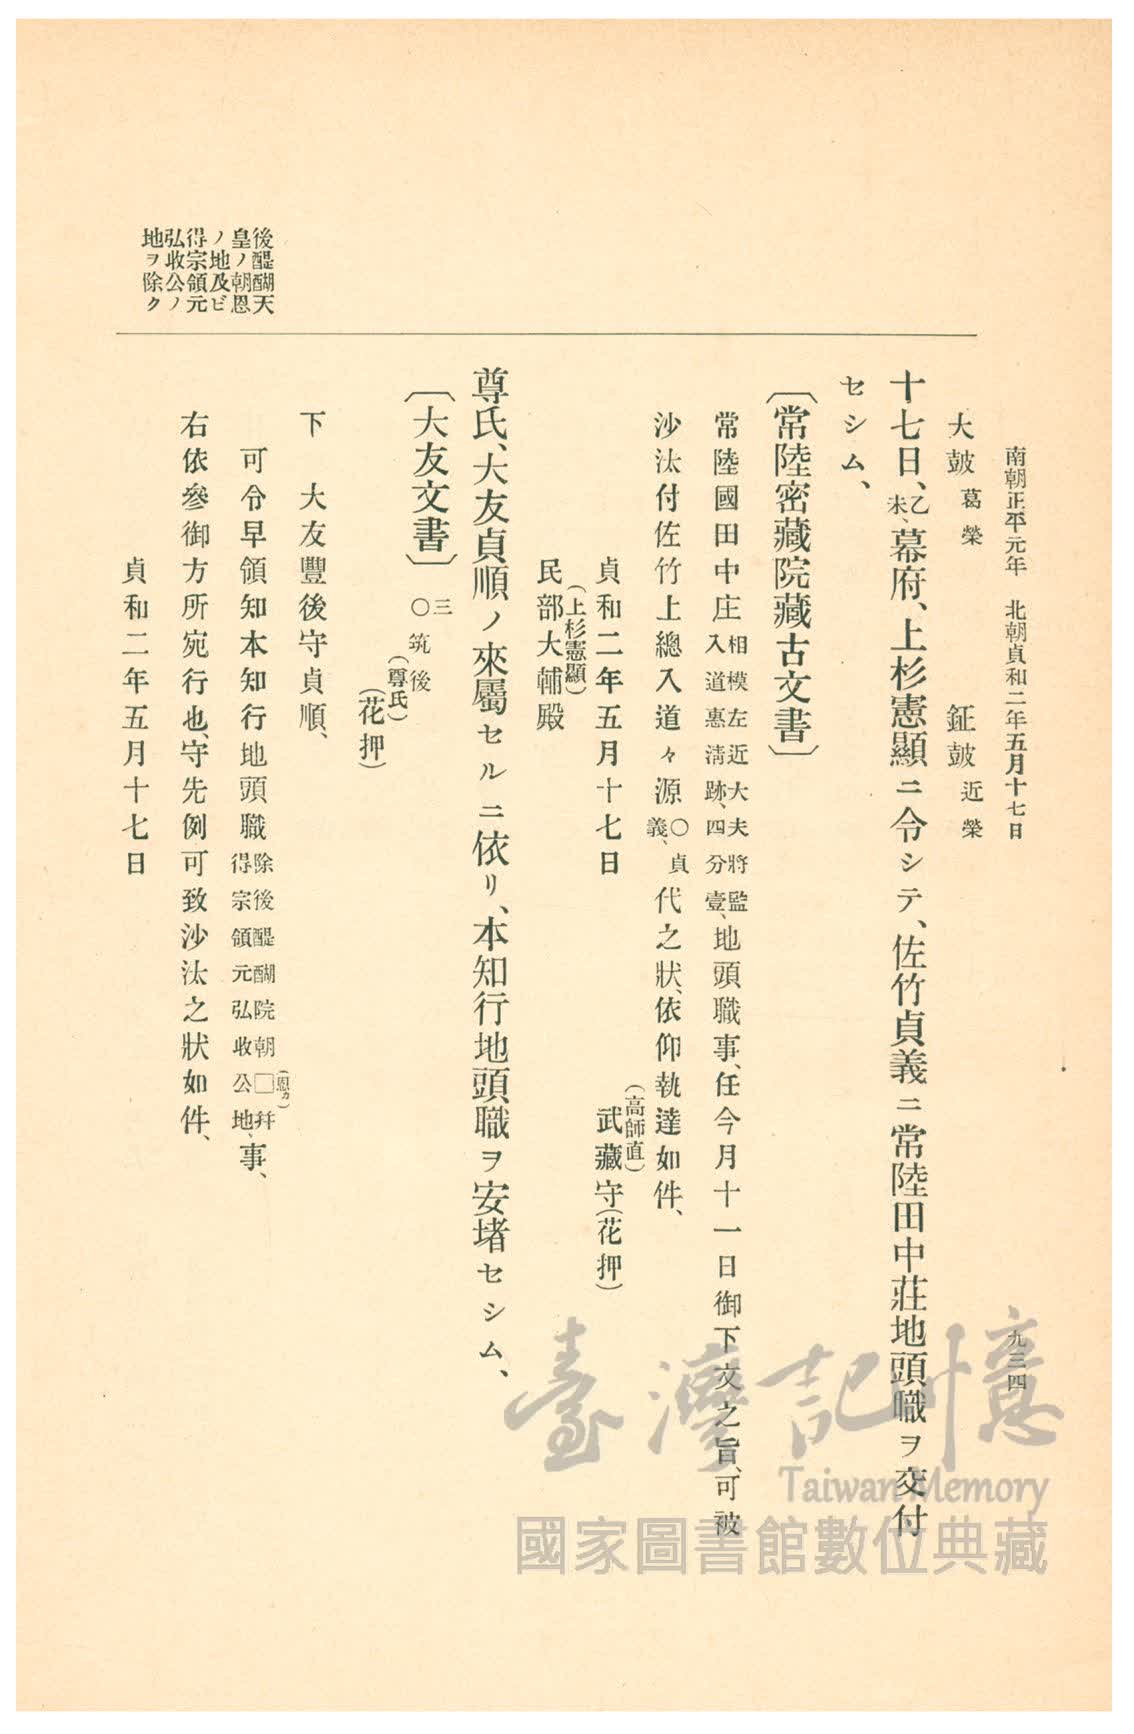 南朝正平元年　北朝貞和二年五月十七日
九三四
大皷葛榮　鉦皷近榮
十七日、乙未、幕府、上杉憲顯ニ令シテ、佐竹貞義ニ常陸田中莊地頭職ヲ交付
セシム、
〔常陸密藏院藏古文書〕
常陸國田中庄相模左近大夫將監入道惠淸跡、四分壹、地頭職事、任今月十一日御下文之旨、可被
沙汰付佐竹上總入道々源〇貞義、代之狀、依仰執達如件、
貞和二年五月十七日　武藏守(花押)
(高師直)
民部大輔殿
(上杉憲顯)
尊氏、大友貞順ノ來屬セルニ依リ、本知行地頭職ヲ安堵セシム、
〔大友文書〕三〇筑後
(尊氏)
(花押)
下　大友豐後守貞順、
可令早領知本知行地頭職除後醍醐院朝□幷得宗領元弘收公地、事、
(恩カ)
右依參御方所宛行也、守先例可致沙汰之狀如件、
貞和二年五月十七日
後醍醐天
皇ノ朝恩
ノ地及ビ
得宗領元
弘收公ノ
地ヲ除ク
臺灣記憶
Taiwan Memory
國家圖書館數位典藏